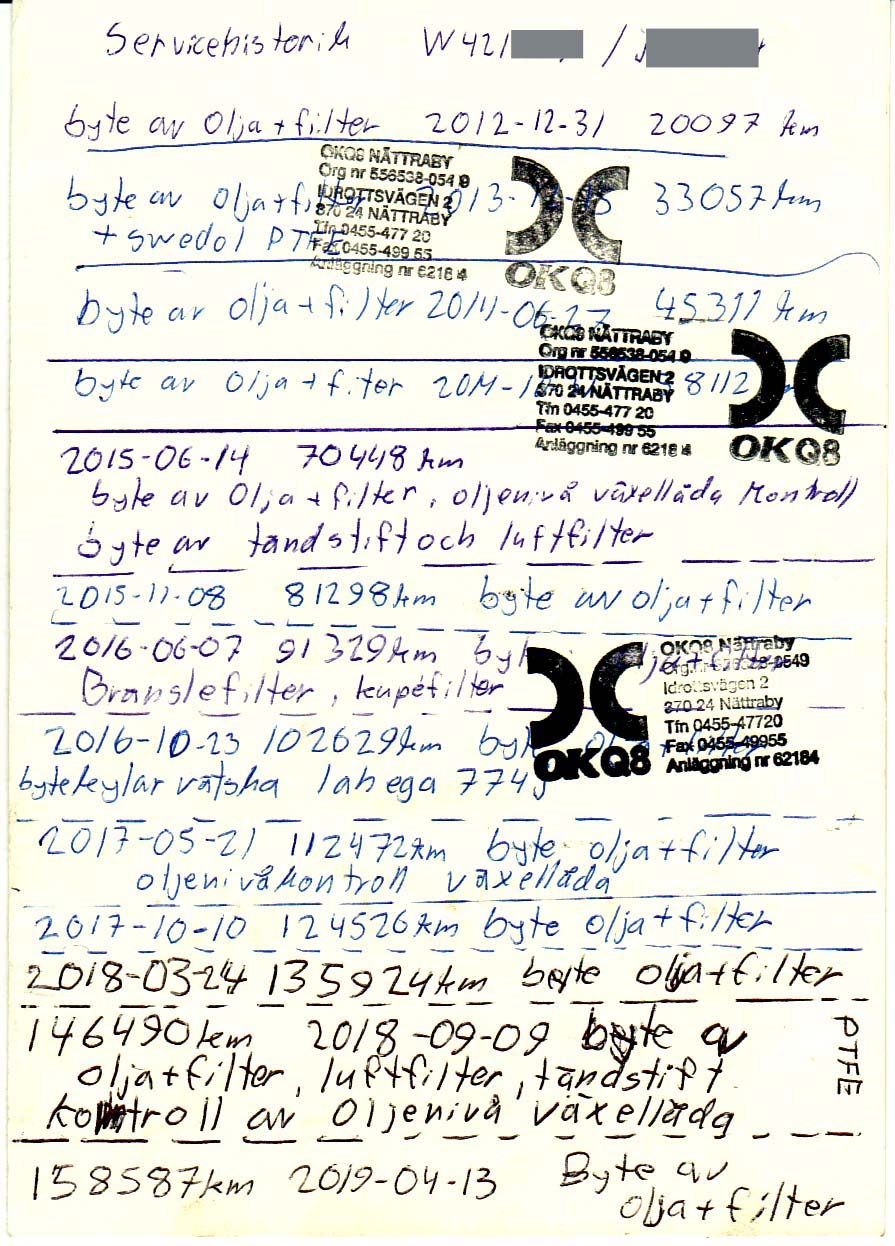 Servicehistorik W421 /
byte av olja + filter 2012-12-31 20097 km
OKQ8 NÄTTRABY
Org nr 556538-054 9
IDROTTSVÄGEN 2
370 24 NÄTTRABY
Tfn 0455-477 20
Fax 0455-499 55
Anläggning nr 6218 4
OKQ8
byte av olja + filter 2013-12- 33057 km
+ swedol PTFE
byte av olja + filter 2014-06-27 45311 km
OKQ8 NÄTTRABY
Org nr 556538-054 9
IDROTTSVÄGEN 2
370 24 NÄTTRABY
Tfn 0455-477 20
Fax 0455-499 55
Anläggning nr 6218 4
OKQ8
byte av olja + filter
2015-06-14 70448 km
byte av olja + filter, oljenivå växellåda kontroll
byte av tändstift och luftfilter
2015-11-08 81298 km byte av olja + filter
2016-06-07 91329 km olja + filter
Bränslefilter, kupéfilter
OKQ8
OKQ8 Nättraby
Idrottsvägen 2
370 24 Nättraby
Tfn 0455-47720
Fax 0455-49955
Anläggning nr 62184
2016-10-23 102629 km
byte kylar vätska lahega 774
2017-05-21 112472 km byte olja + filter
oljenivåkontroll växellåda
2017-10-10 124526 km byte olja + filter
2018-03-24 135924 km byte olja + filter
146490 km 2018-09-09 byte av
olja + filter, luftfilter, tändstift
kontroll av Oljenivå växellåda
PTFE
158587 km 2019-04-13 Byte av
olja + filter